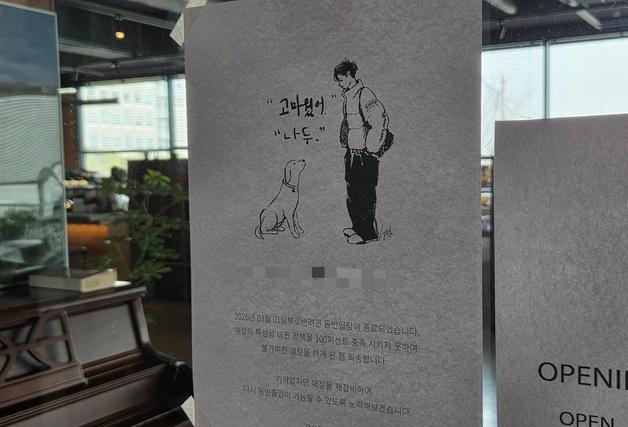 "고마웠어."
"나두."
2026년 03월 01일부로 반려견 동반입장이 종료되었습니다.
매장의 특성상 바뀐 정책을 100퍼센트 충족 시키지 못하여
불가피한 결정을 하게 된 점 죄송합니다.
기약없지만 매장을 재정비하여
다시 동반출입이 가능할 수 있도록 노력해보겠습니다.
OPENI
OPEN